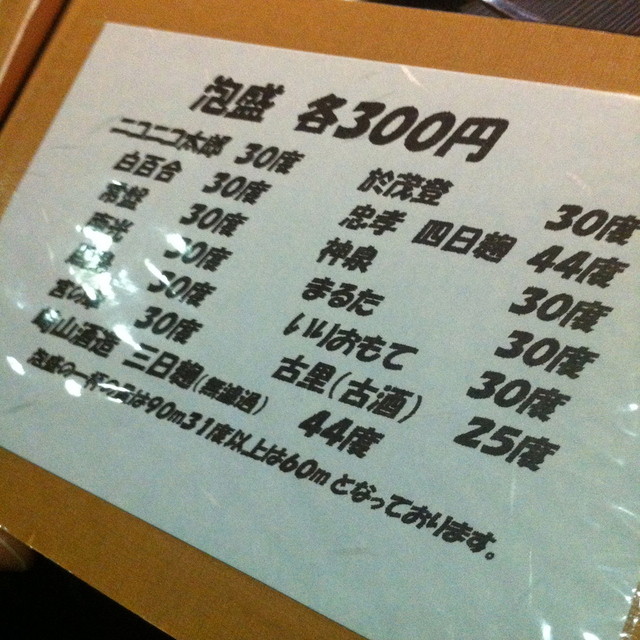 泡盛 各300円
ニコニコ太郎 30度
白百合 30度
30度
30度
30度
30度
山酒造 三日麹(無濾過) 44度
於茂登 30度
忠孝 四日麹 44度
神泉 30度
まるた 30度
いりおもて 30度
古里(古酒) 25度
泡盛の一杯の は90m31度以上は60mとなっております。